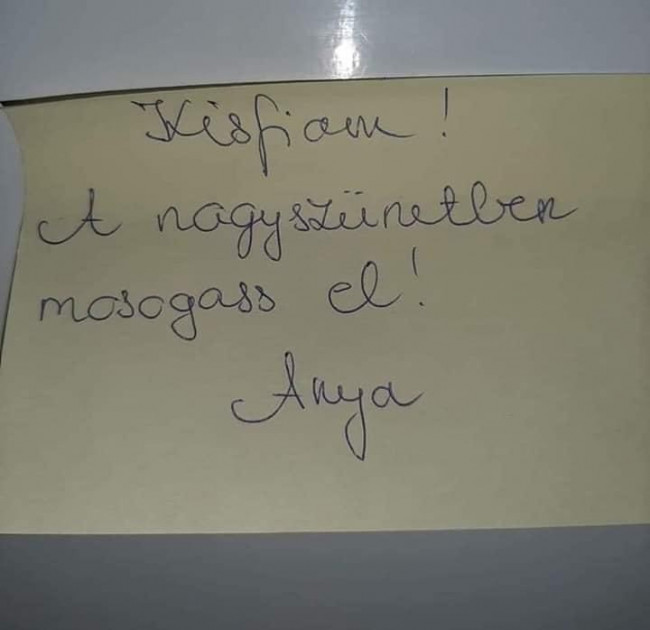 Kisfiam!
A nagyszünetben
mosogass el!
Anya